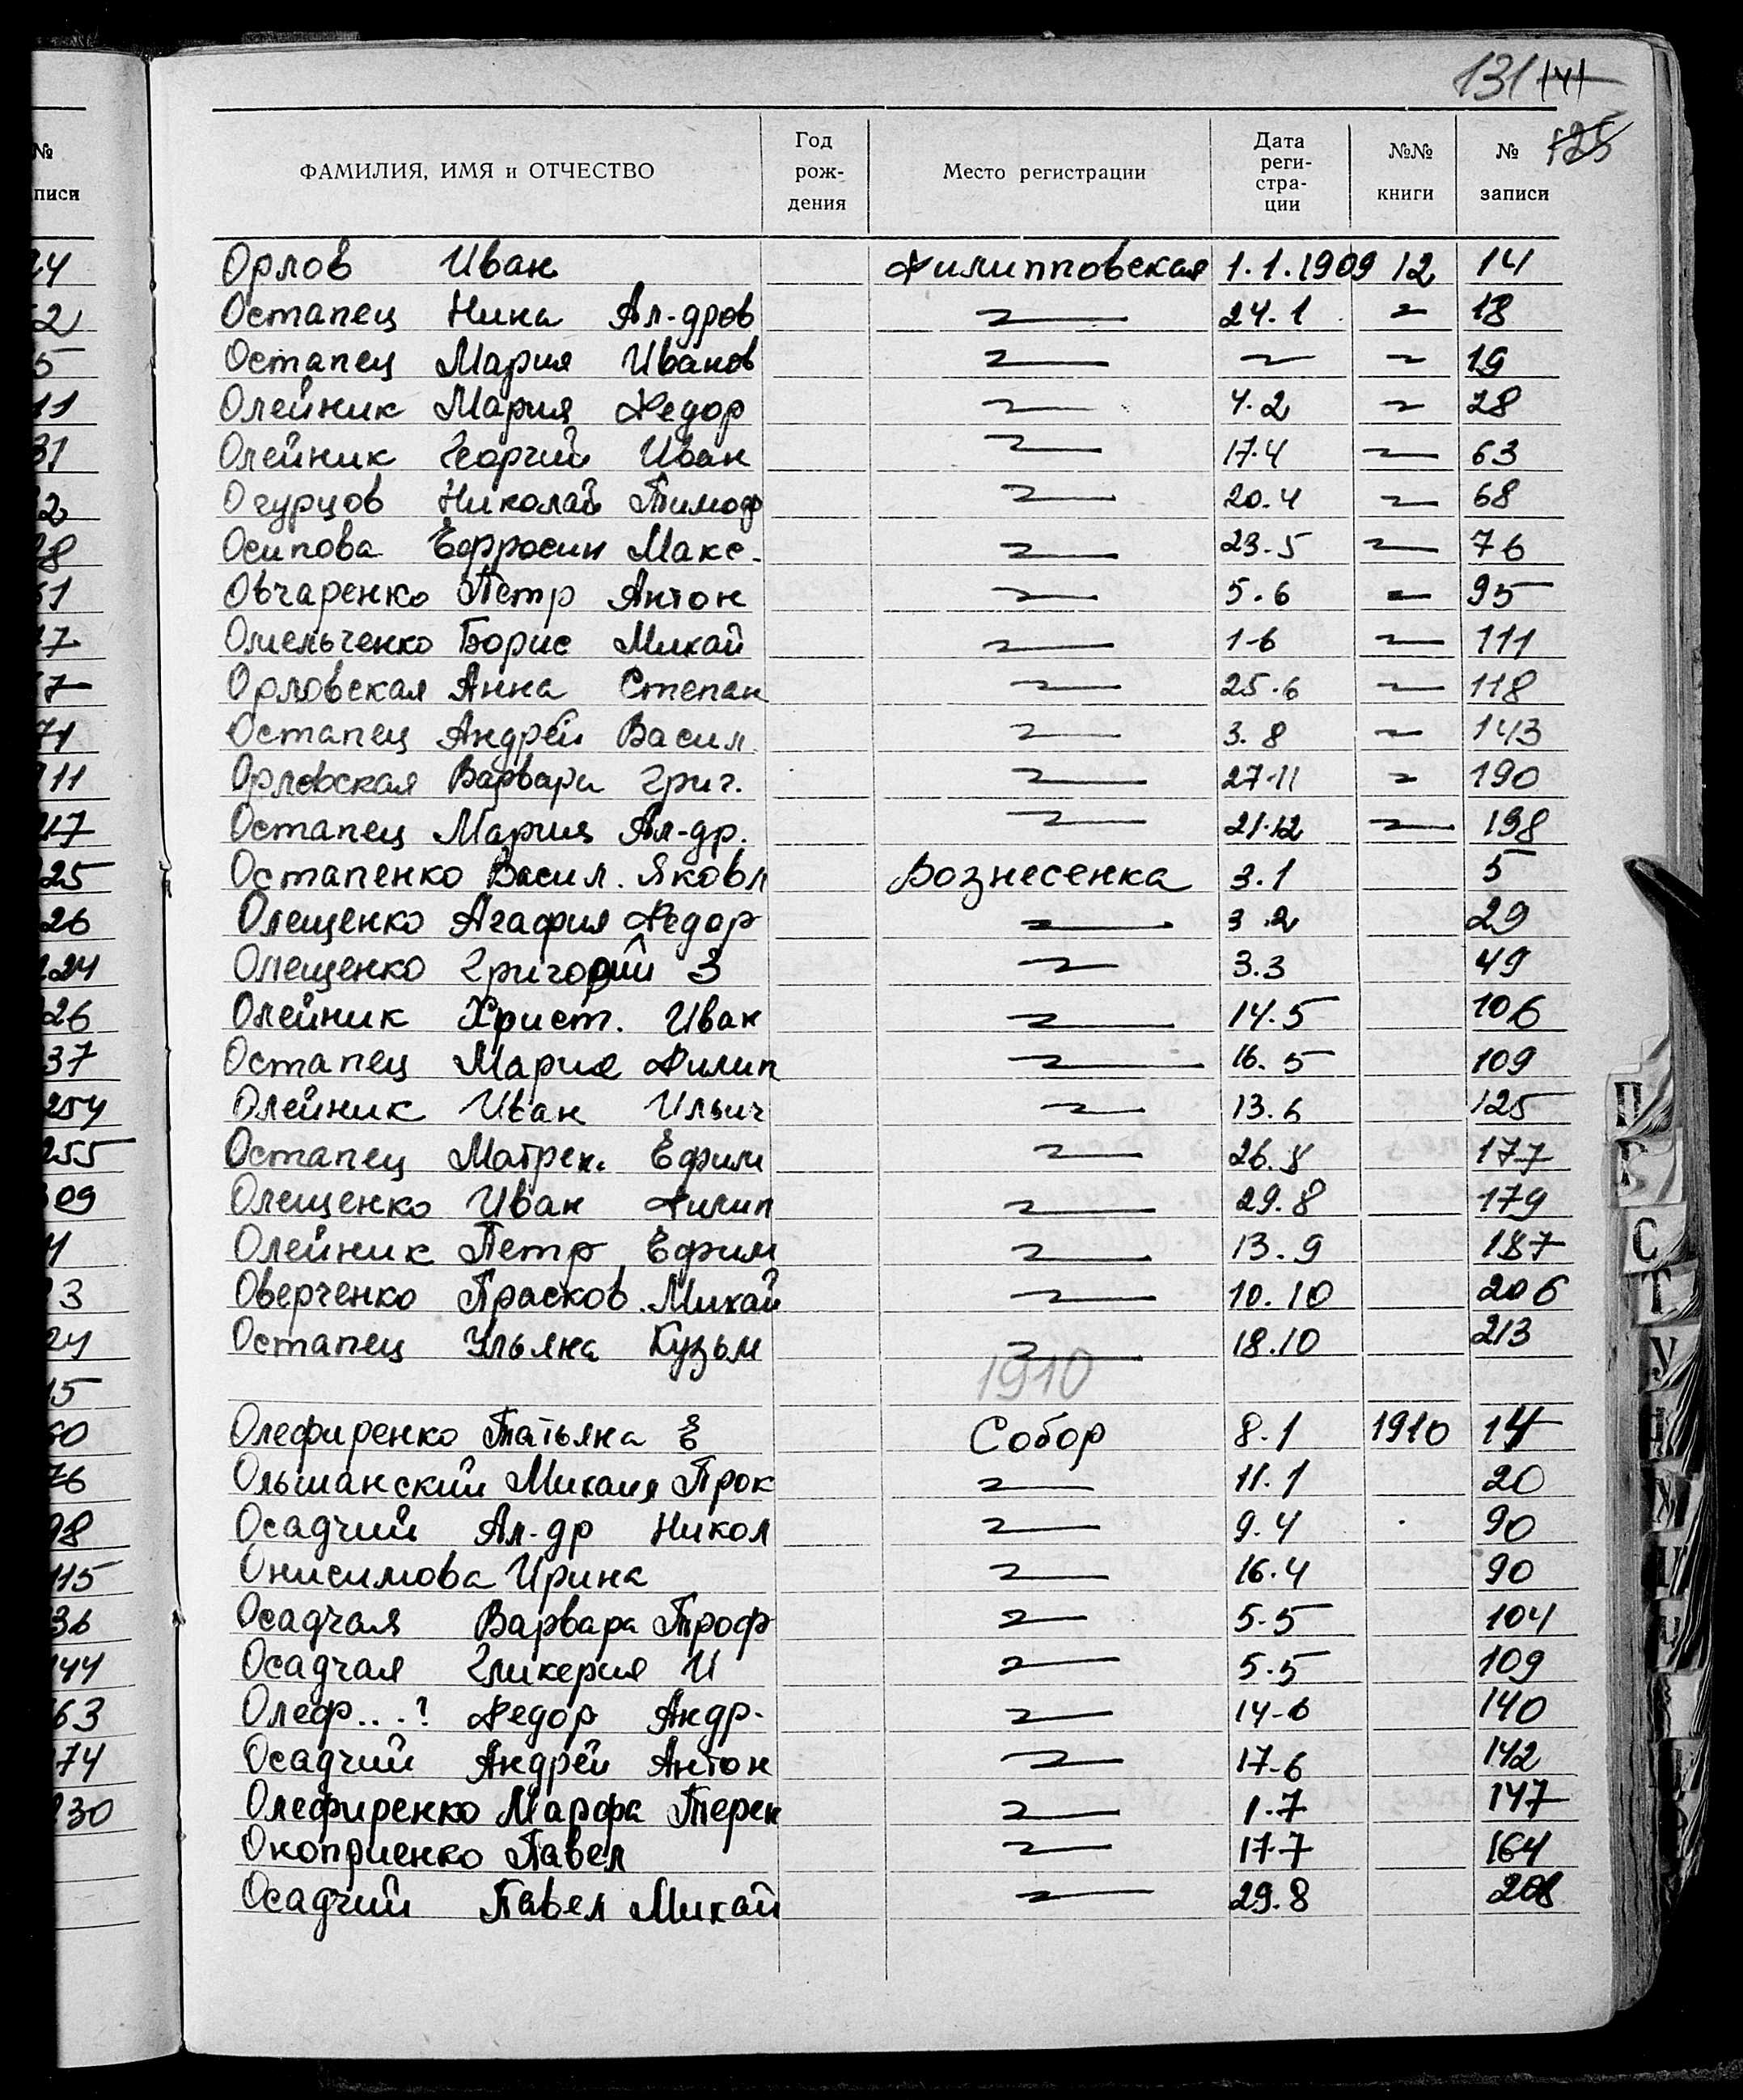 131 141
125
№
записи
ФАМИЛИЯ, ИМЯ и ОТЧЕСТВО Год рож- дения Место регистрации Дата реги- стра- ции №№ книги № записи
Орлов Иван Филипповская 1.1.1909 12 14
Остапец Нина Ал-дров 〃 24.1 〃 18
Остапец Мария Иванов 〃 〃 〃 19
Олейник Мария Федор 〃 4.2 〃 28
Олейник Георгий Иван 〃 17.4 〃 63
Огурцов Николай Тимоф 〃 20.4 〃 68
Осипова Ефросин Макс- 〃 23.5 〃 76
Овчаренко Петр Антон 〃 5.6 〃 95
Омельченко Борис Михай 〃 1-6 〃 111
Орловская Анна Степан 〃 25.6 〃 118
Остапец Андрей Васил. 〃 3.8 〃 143
Орловская Варвара Григ. 〃 27.11 〃 190
Остапец Мария Ал-др. 〃 21.12 〃 198
Остапенко Васил. Яковл Вознесенка 3.1 5
Олещенко Агафия Федор 〃 3.2 29
Олещенко Григорий З 〃 3.3 49
Олейник Христ. Иван 〃 14.5 106
Остапец Мария Филип 〃 16.5 109
Олейник Иван Ильич 〃 13.6 125
Остапец Матрен. Ефим 〃 26.8 177
Олещенко Иван Филип 〃 29.8 179
Олейник Петр Ефим 〃 13.9 187
Оверченко Прасков. Михай 〃 10.10 206
Остапец Ульяна Кузьм 〃 18.10 213
1910
Олефиренко Татьяна Е Собор 8.1 1910 14
Ольшанский Михаил Прок 〃 11.1 20
Осадчий Ал-др Никол 〃 9.4 90
Онисимова Ирина 〃 16.4 90
Осадчая Варвара Троф 〃 5.5 104
Осадчая Гликерия И 〃 5.5 109
Олеф...? Федор Андр- 〃 14-6 140
Осадчий Андрей Антон 〃 17-6 142
Олефиренко Марфа Терен 〃 1.7 147
Окоприенко Павел 〃 17.7 164
Осадчий Павел Михай 〃 29.8 208
П
С
Т
У